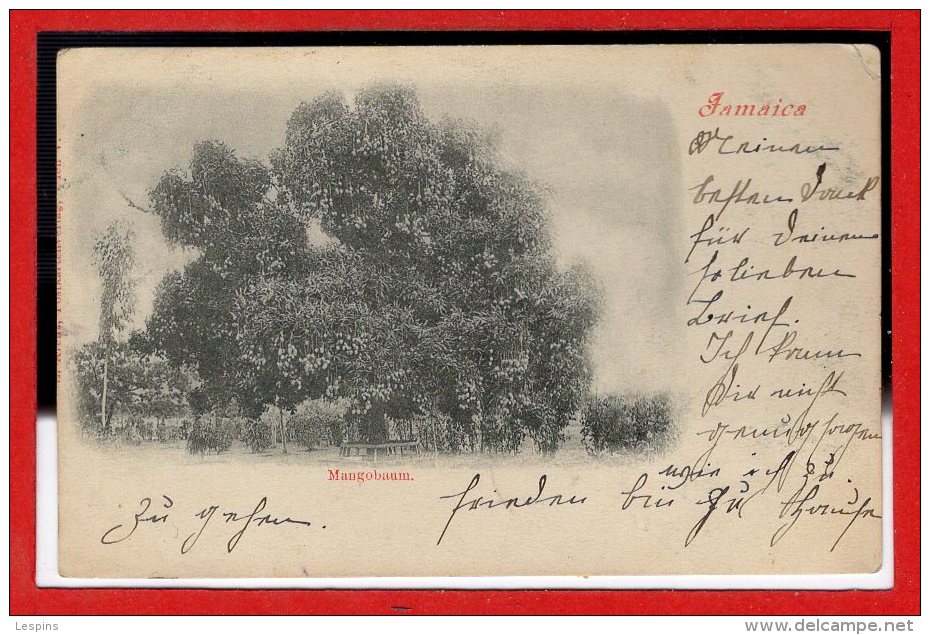 Jamaica
Meinen
besten Dank
für Deinen
so lieben
Brief.
Ich kann
Dir nicht
genug sagen
wie ich zu
frieden bin zu Hause
zu gehen.
Mangobaum.
Lespins
www.delcampe.net